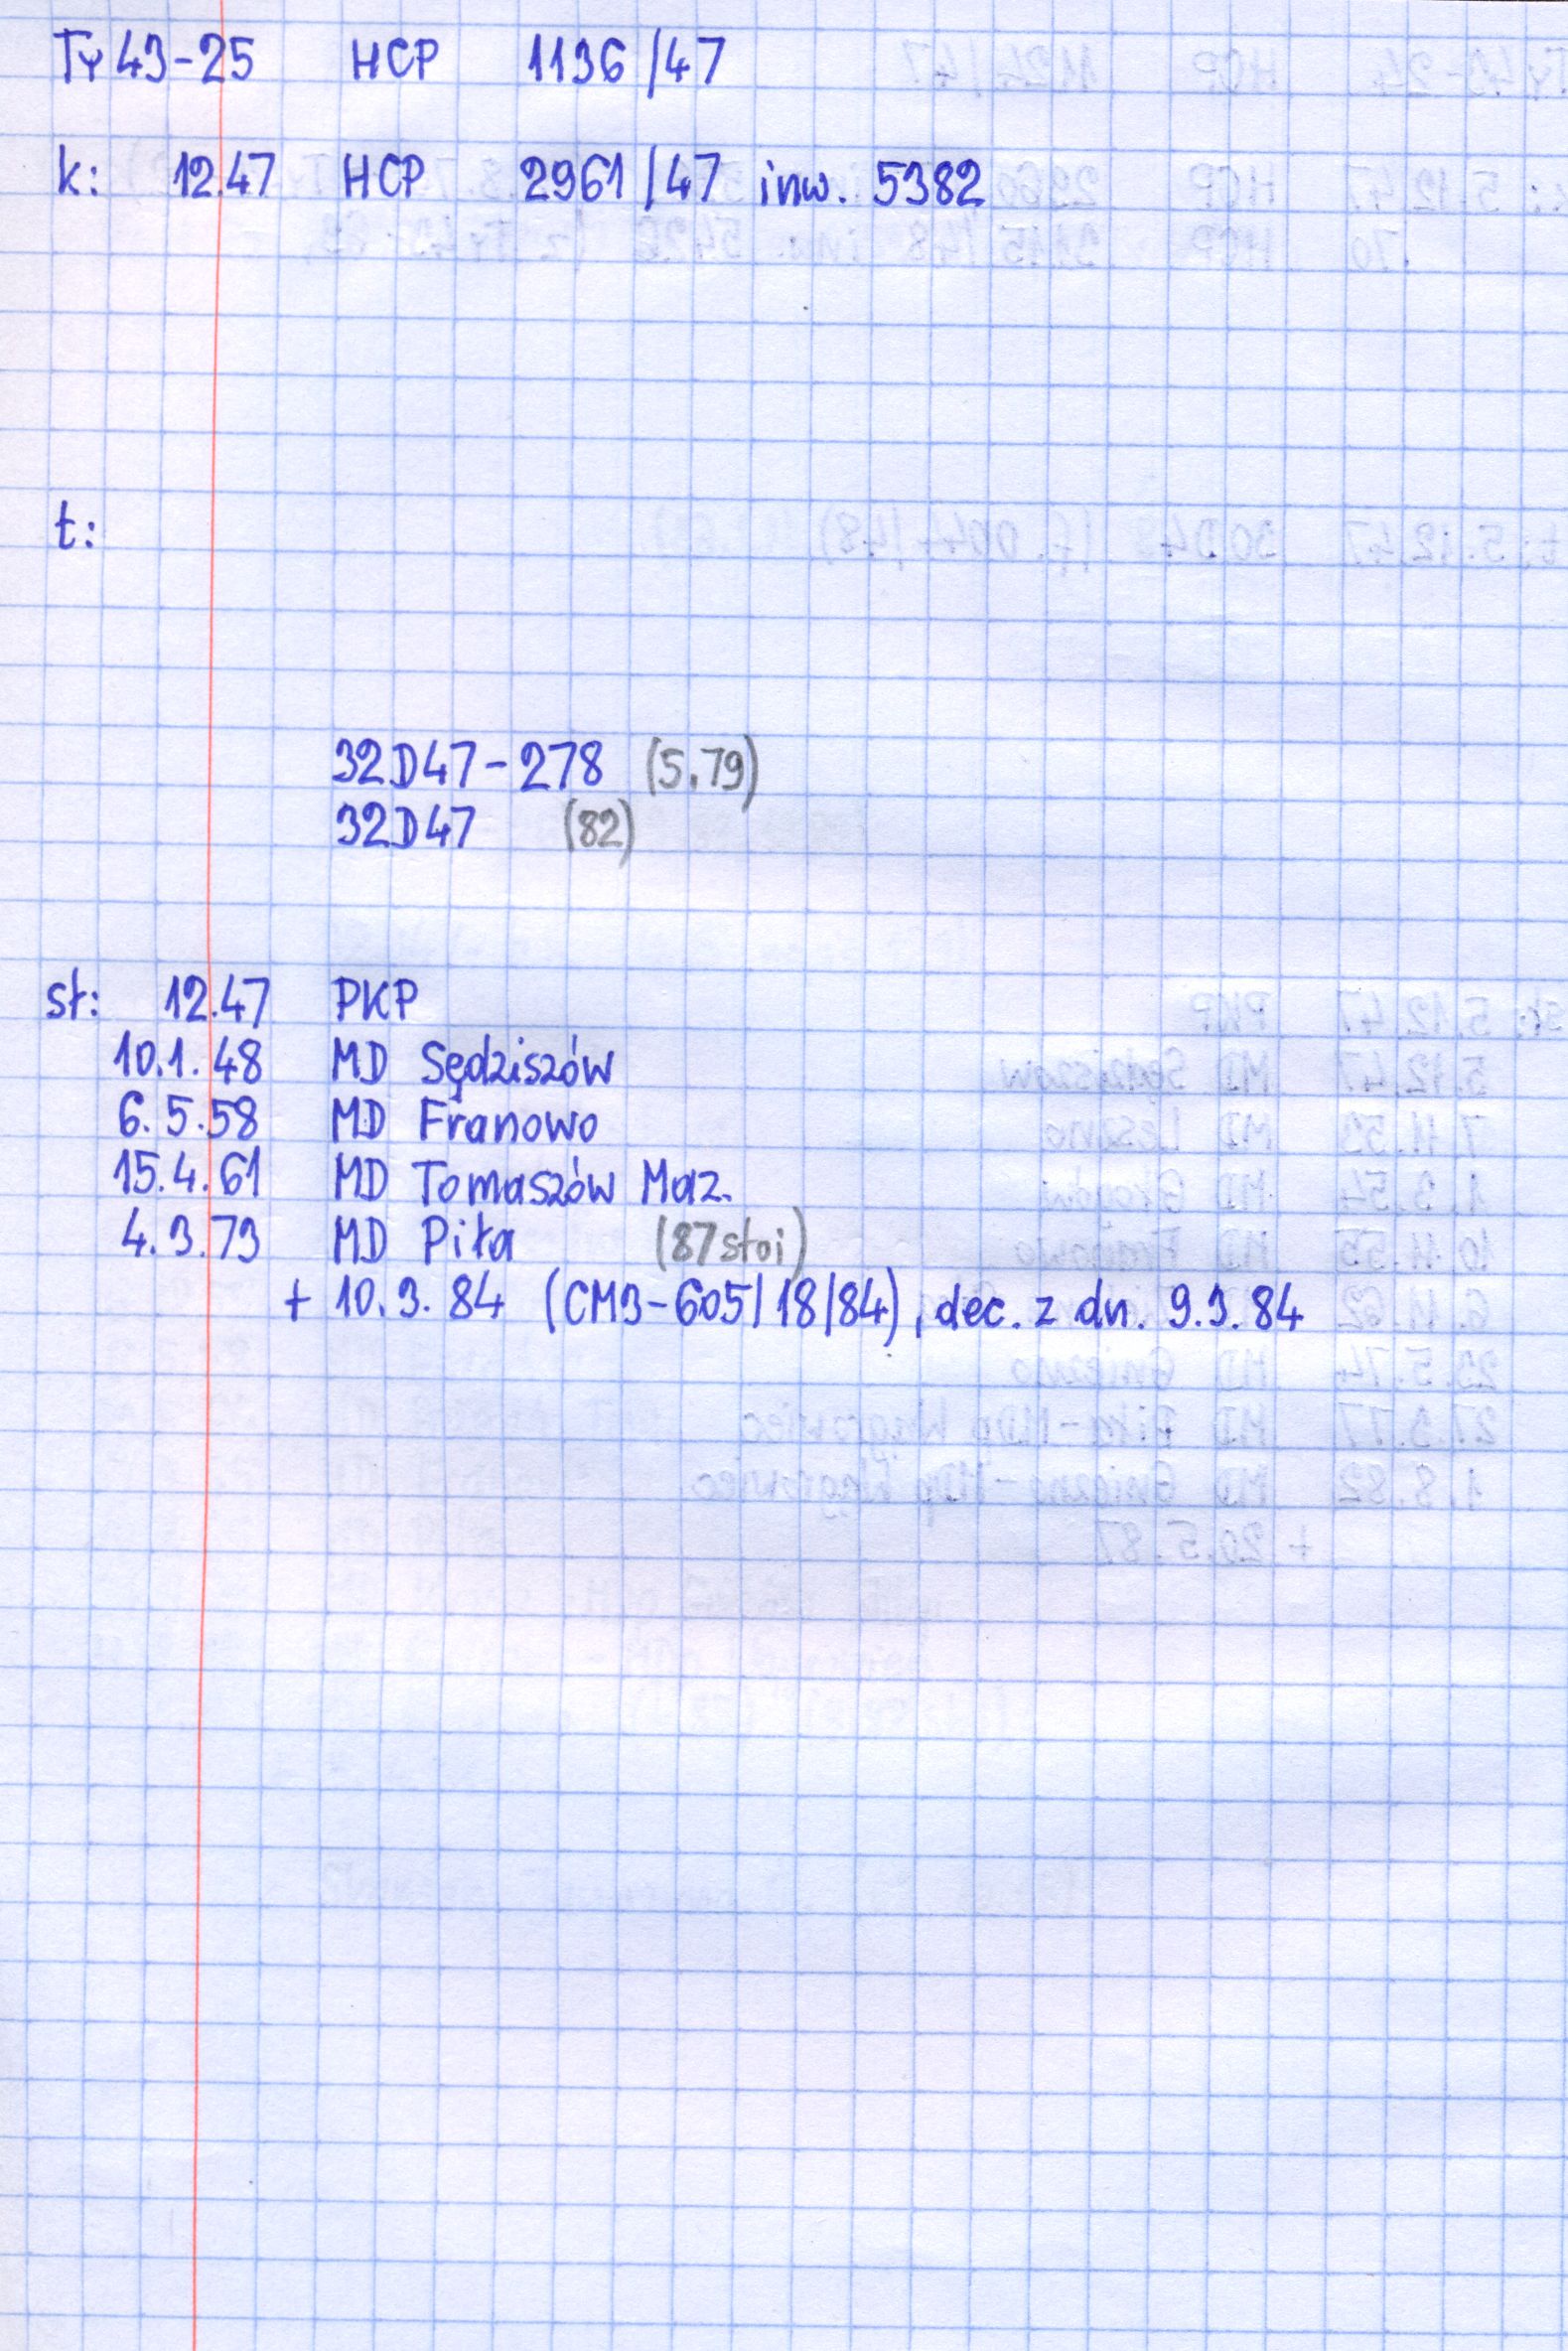 Ty 43-25 HCP 1136/47
k: 12.47 HCP 2961/47 inw. 5382
t:
32D47-278 (5.79)
32D47 (82)
st: 12.47 PKP
10.1.48 MD Sędziszów
6.5.58 MD Franowo
15.4.61 MD Tomaszów Maz.
4.3.73 MD Piła (87 stoi)
+ 10.3.84 (CM3-605/18/84), dec. z dn. 9.3.84